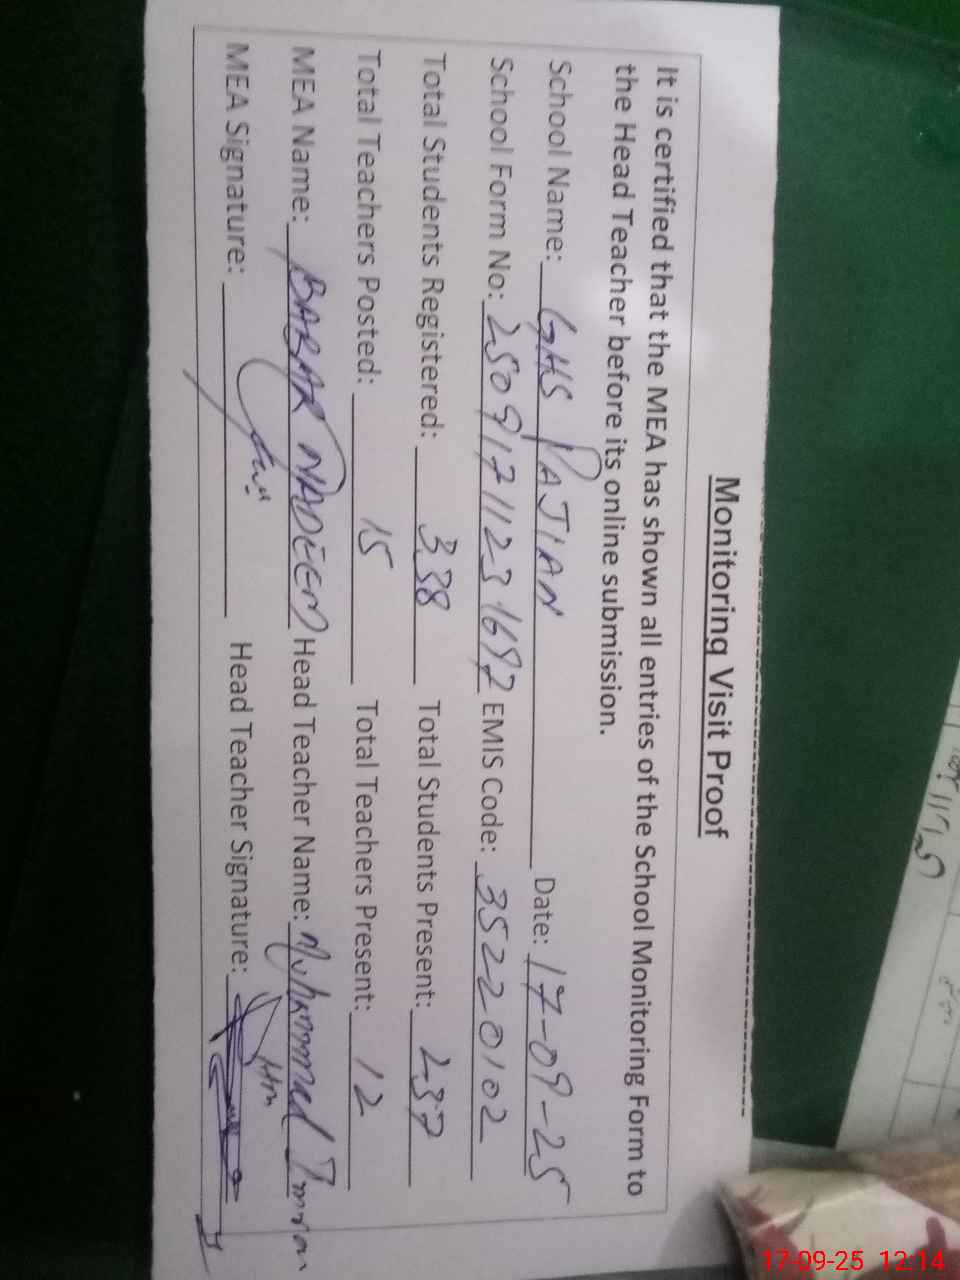 Monitoring Visit Proof
It is certified that the MEA has shown all entries of the School Monitoring Form to
the Head Teacher before its online submission.
School Name: GHS PAJIAN Date: 17-09-25
School Form No: 2509171123 1697 EMIS Code: 35220102
Total Students Registered: 338 Total Students Present: 237
Total Teachers Posted: 15 Total Teachers Present: 12
MEA Name: BABAR NADEEM Head Teacher Name: Muhammad Imran
MEA Signature: Head Teacher Signature: Hm
17-09-25 12:14